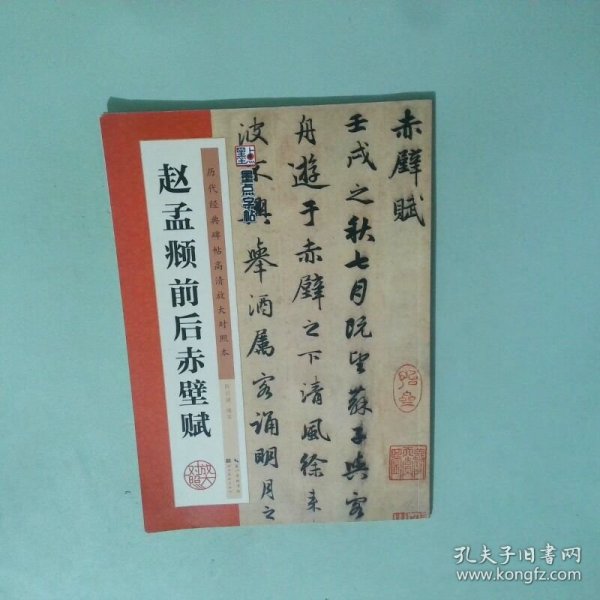 赤壁賦
壬戌之秋七月既望蘇子與客
舟遊于赤壁之下清風徐来
波不興舉酒屬客誦明月之
墨点字帖
历代经典碑帖高清放大对照本
赵孟頫前后赤壁赋
放大
对照
孔夫子旧书网
www.kongfz.com